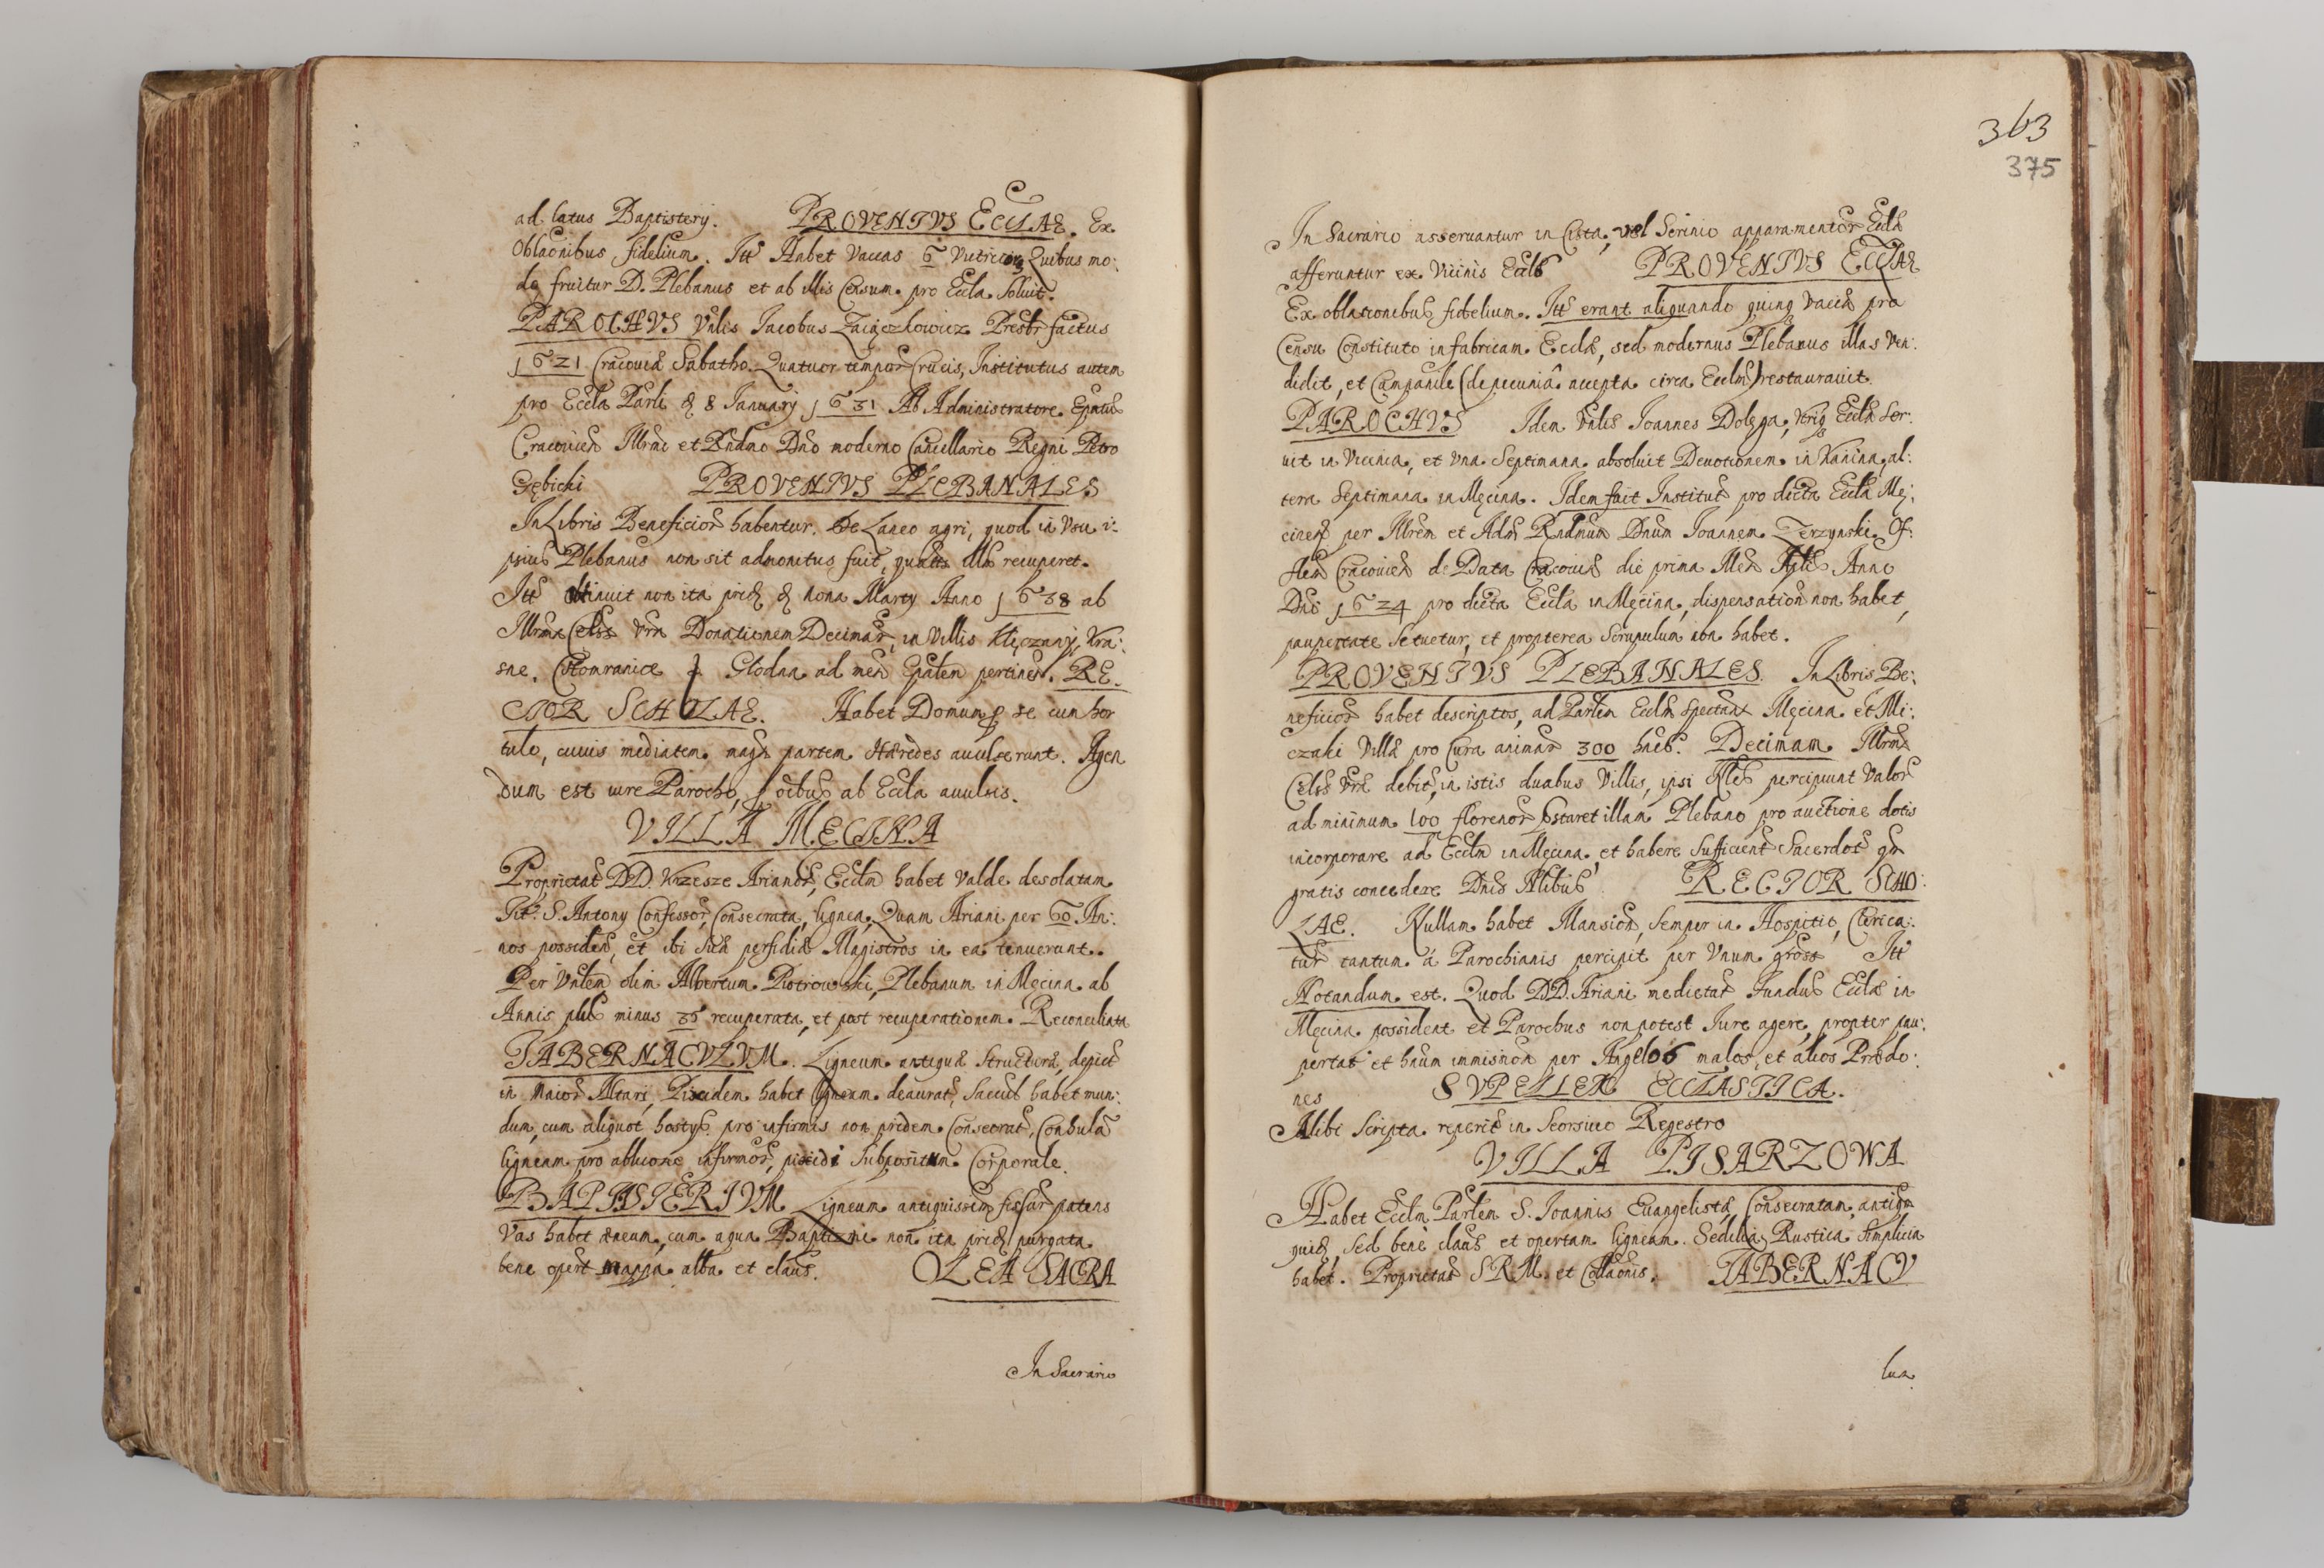 ad latus Baptisterÿ. PROVENTVS ECCLAE. Ex
Oblaõnibus fidelium. Itt Habet Vaccas 6 Quibus mo:
do fruitur D. Plebanus et ab illis Censum pro Eccla Soluit.
PAROCHVS Vnlis Iacobus Zaiączkowicz Presbr factus
1621 Cracouiæ Sabatho Quatuor tempor Crucis, Institutus autem
pro Eccla Parli 8 Ianuarÿ 1631 Ab Administratore Epatus
Cracouien Illrmo et Rndmo Dno moderno Cancellario Regni Petro
Gębicki PROVENTVS PLEBANALES
In Libris Beneficior habentur. De Laneo agri, quod in Vsu i:
psius Plebanus non sit admonitus fuit, quatts illũ recuperet.
Itt obtinuit non ita prid nona Martÿ Anno 1638 ab
Illrma Cels Vra Donationem Decimar, in Villis Klęczanÿ, Kra:
sne, Chomranice Glodna ad men Epalem pertinen. RE.
CTOR SCHOLAE. Habet Domum se cum hor
tulo, cuius mediatem partem Hæredes auulserunt. Agen
dum est iure Parocho, oibus ab Eccla auulsis.
VILLA MĘCINA
Proprietas DD. Krzesze Arianor, Ecclm habet valde desolatam
Tit. S. Antonÿ Confessor, Consecrata, lignea, Quam Ariani per 60 An:
nos possiden, et ibi suæ perfidiæ Magistros in ea tenuerunt.
Per Vnlem olim Albertum Piotrowski, Plebanum in Męcina ab
Annis plus minus 36 recuperata, et post recuperationem Reconciliata
TABERNACVLVM. Ligneum antiquæ Structuræ, depict
in Maiori Altari, Pixidem habet ligneam deaurat, Saccul habet mun:
dum, cum aliquot hostÿs pro infirmis non pridem Consecrat, Conhulã
ligneam pro ablucione infirmor, pixidi Subpositum Corporale.
BAPTISTERIVM Ligneum antiquissim fissur patens
Vas habet æneum, cum aqua Baptizmi non ita prid purgata
bene opert mappa alba et claus. OLEA SACRA
In Sacrario
363
375
In Sacrario asseruantur in Cista, vel Scrinio apparamentor Ecclæ
afferuntur ex Vicinis Ecclis PROVENTVS ECCLAE
Ex oblationibus fidelium. Itt erant aliquando quinq Vaccæ pro
Censu Constituto in fabricam Ecclæ, sed modernus Plebanus illas Ven:
didit, et Campanile (de pecuniâ accepta circa Ecclm) restaurauit.
PAROCHVS Idem Vnlis Ioannes Dolęga, Vtriq Ecclæ Ser:
uit in Vicinia, et Vna Septimana absoluit Deuotionem in Kanina, al:
tera Septimana in Męcina. Idem fuit Institut pro dicta Eccla Mę:
cinen per Illrem et Adm Rndnum Dnum Ioannem Zerzynski Of:
flem Cracouien de Data Cracouiæ die prima Men Anno
Dni 1624 pro dicta Eccla in Męcina, dispensation non habet,
paupertate Se tuetur, et propterea Scrupulum non habet.
PROVENTVS PLEBANALES. In Libris Be:
neficior habet descriptos, ad Parlem Ecclm Spectant Męcina et Mi:
czaki Villæ pro Cura animar 300 habet. Decimam Illrmæ
Cels Vræ debit, in istis duabus Villis, ipsi percipiunt Valor
ad minimum 100 florenor Pstaret illam Plebano pro auctione dotis
incorporare ad Ecclm in Męcina, et habere Sufficient Sacerdot
gratis concedere Dnis RECTOR SCHO:
LAE. Nullam habet Mansion, Semper in Hospitit, Clerica:
tur tantum á Parochianis percipit per Vnum gross Itt
Notandum est. Quod DD. Ariani medietat Fundus Ecclæ in
Męcina possident et Parochus non potest Iure agere, propter pau:
pertat et hnum per Angelos malos, et alios Prædo:
nes SVPELLEX ECCLASTICA.
Alibi Scripta reperit in Seorsiuo Regestro
VILLA PISARZOWA
Habet Ecclm Parlem S. Ioannis Euangelistæ, Consecratam, antiqu
quid, Sed bene claus et opertam ligneam. Sedilia, Rustica Simplicia
habet. Proprietas SRM. et Collaõnis. TABERNACV
lum